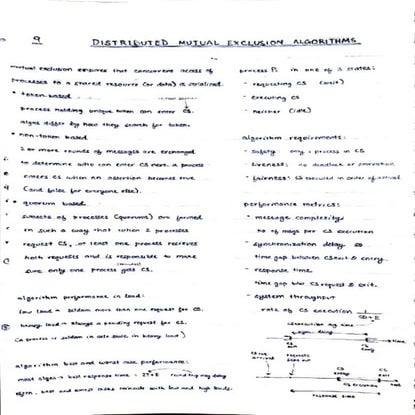 9
DISTRIBUTED MUTUAL EXCLUSION ALGORITHMS
mutual exclusion ensures that concurrent access of
processes to a shared resource (or data) is serialized.
• token-based
process holding unique token can enter CS.
algos differ by how they search for token.
• non-token based
2 or more rounds of messages are exchanged
to determine who can enter CS next. a process
enters CS when an assertion becomes true
(and false for everyone else).
• quorum based
subsets of processes (quorums) are formed
in such a way that when 2 processes
request CS, at least one process recieves
both requests and is responsible to make
sure only one process gets CS.
algorithm performance in load:
low load → seldom more than one request for CS.
heavy load → always a pending request for CS.
(a process is seldom in idle state in heavy load)
algorithm best and worst case performance:
most algos → best response time = 2T+E round trip msg delay
often, best and worst cases coincide with low and high loads.
process Pi in one of 3 states:
- requesting CS (wait)
- executing CS
- neither (idle)
algorithm requirements:
- safety only 1 process in CS
- liveness: no deadlock or starvation
- fairness: CS executed in order of arrival
performance metrics:
- message complexity
no of msgs per CS execution
- synchronization delay SD
time gap between CS exit & entry
- response time
time gap b/w CS request & exit.
- system throughput
rate of CS execution 1/SD+E
response time